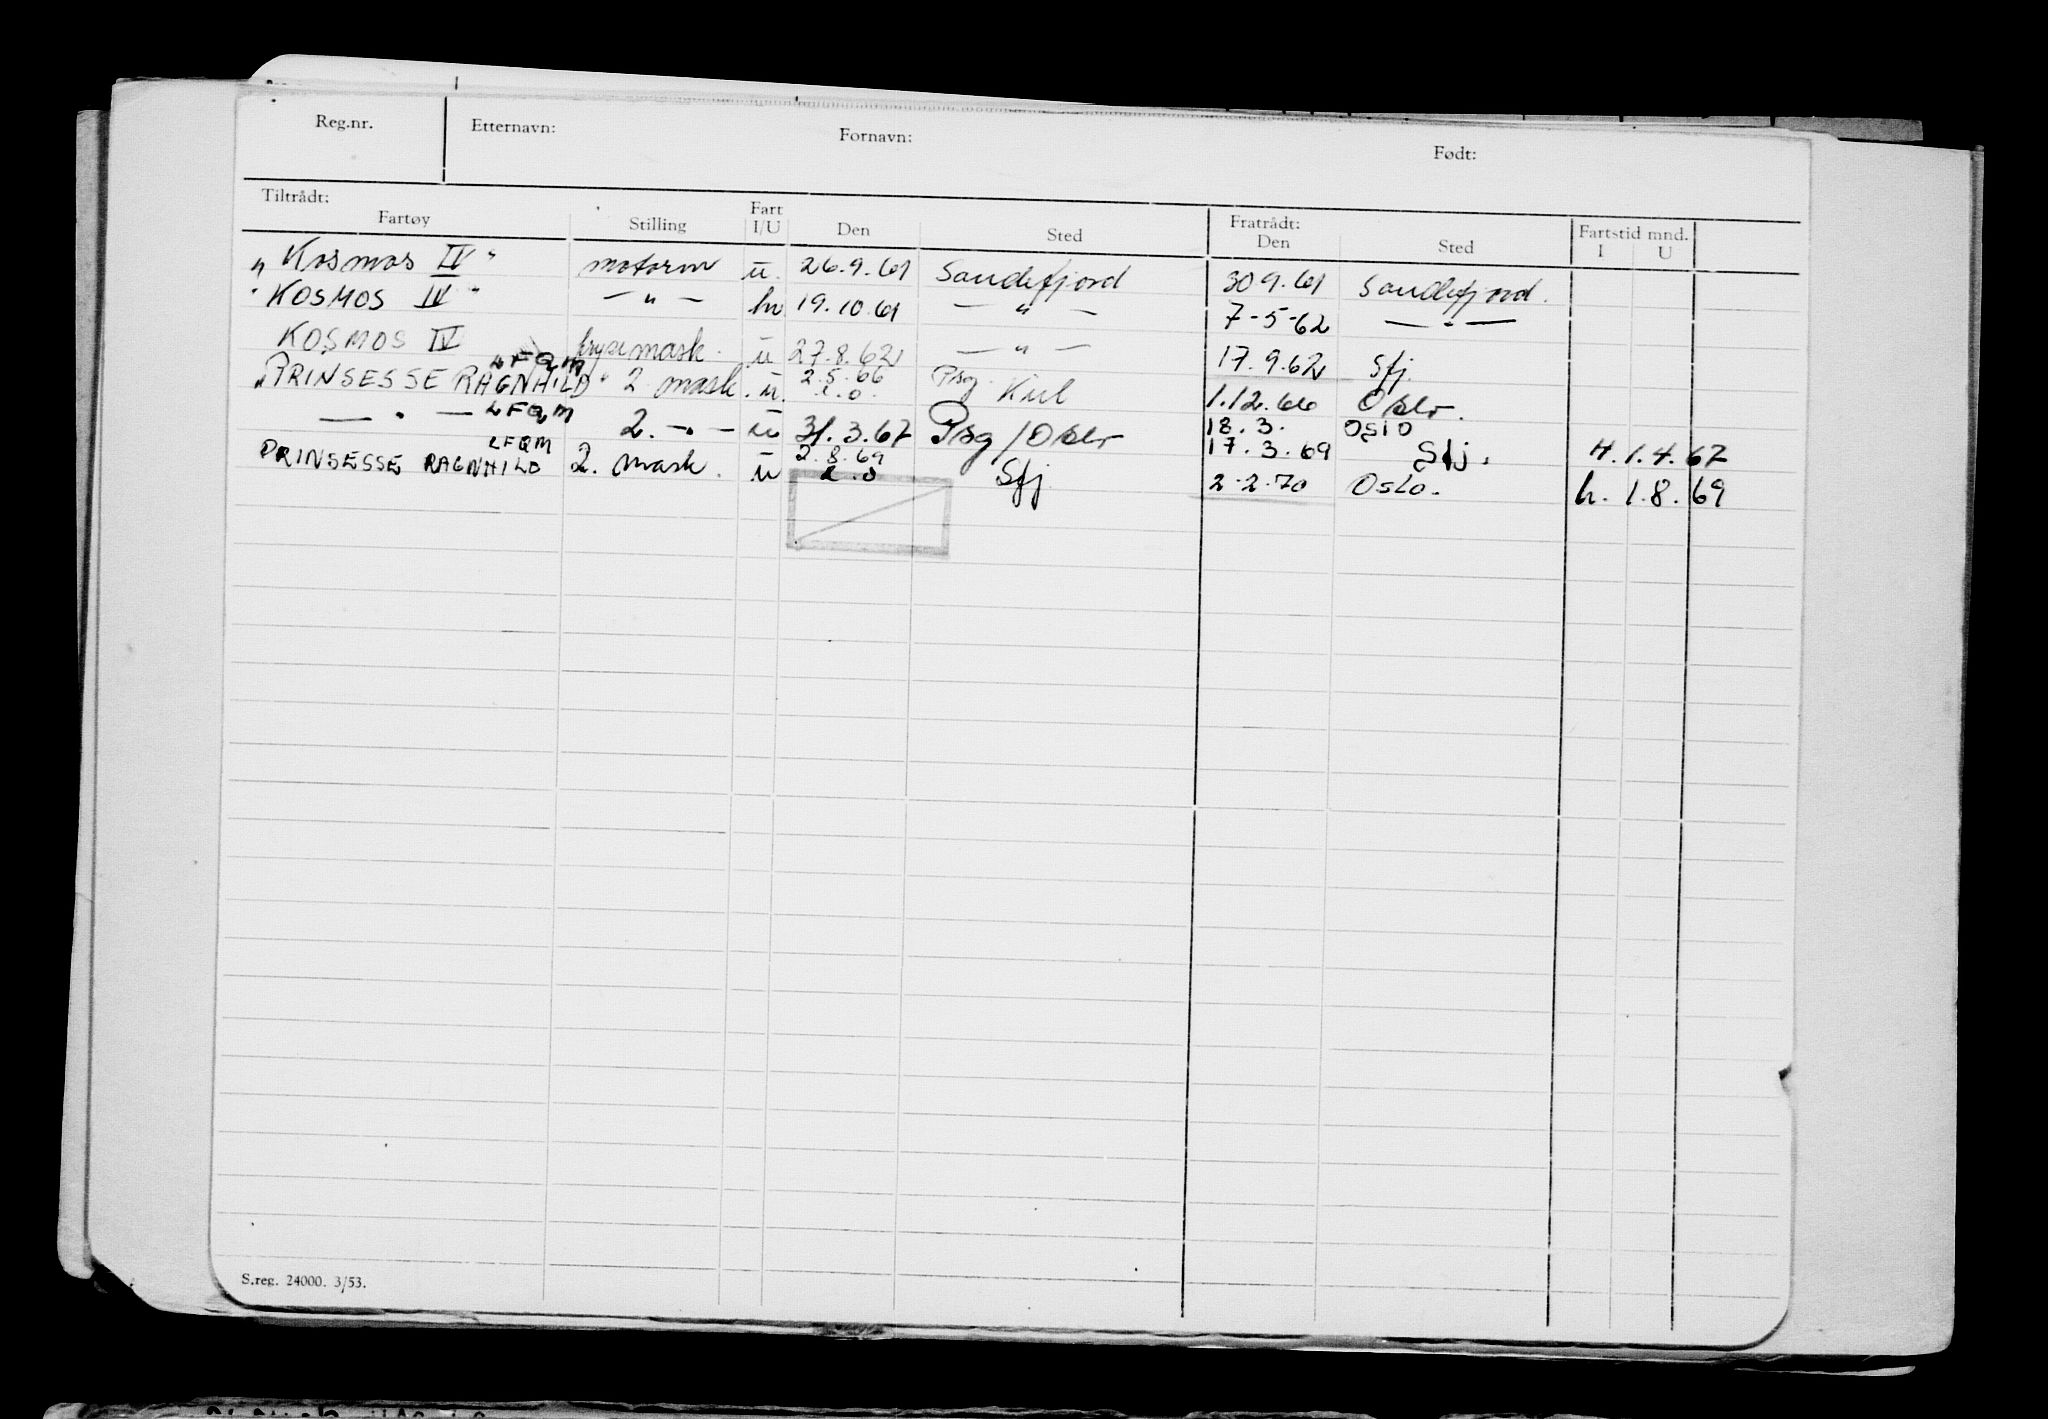 Reg.nr. Etternavn: Fornavn: Født:
Tiltrådt: Fratrådt:
Fartøy Stilling Fart I/U Den Sted Den Sted Fartstid mnd. I U
" Kosmos IV " motorm u. 26.9.61 Sandefjord 30 9.61 Sandefjord.
" KOSMOS IV " — " — hv 19.10.61 — " — 7-5-62 — " —
KOSMOS IV frysemask. u 27.8.62 — " — 17.9.62 Sfj.
LFQM
"PRINSESSE RAGNHILD" 2 mask. u. 2.5.66 Psg Kiel 1.12.66 Oslo.
LFQM
— " — 2. — " — u 31.3.67 Psg/Oslo 18.3. OSLO
17.3.69 Sfj. H.1.4.67
LFQM
PRINSESSE RAGNHILD 2. mask. u 2.8.69 Sfj 2-2-70 Oslo. h. 1.8.69
S.reg. 24000. 3/53.